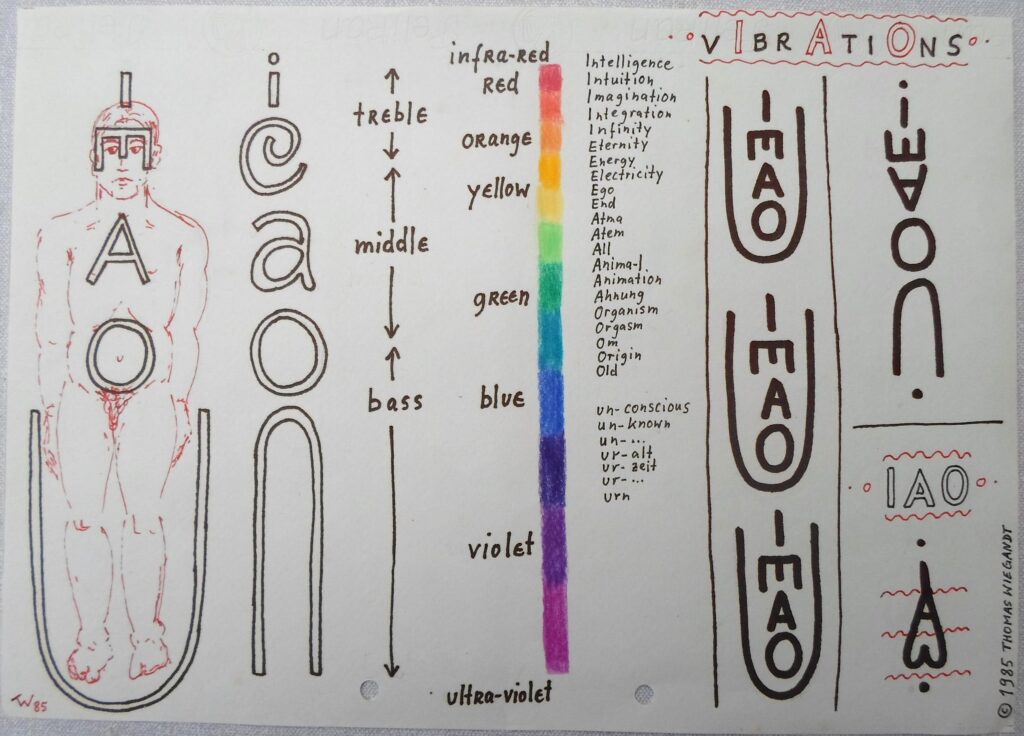 VIBRATIONS
I
A
O
TW 85
i
e
a
o
treble
middle
bass
infra-red
red
orange
yellow
green
blue
violet
ultra-violet
Intelligence
Intuition
Imagination
Integration
Infinity
Eternity
Energy
Electricity
Ego
End
Atma
Atem
All
Anima-l
Animation
Ahnung
Organism
Orgasm
Om
Origin
Old
un-conscious
un-known
un-...
ur-alt
ur-zeit
ur-...
urn
IAO
© 1985 THOMAS WIEGANDT